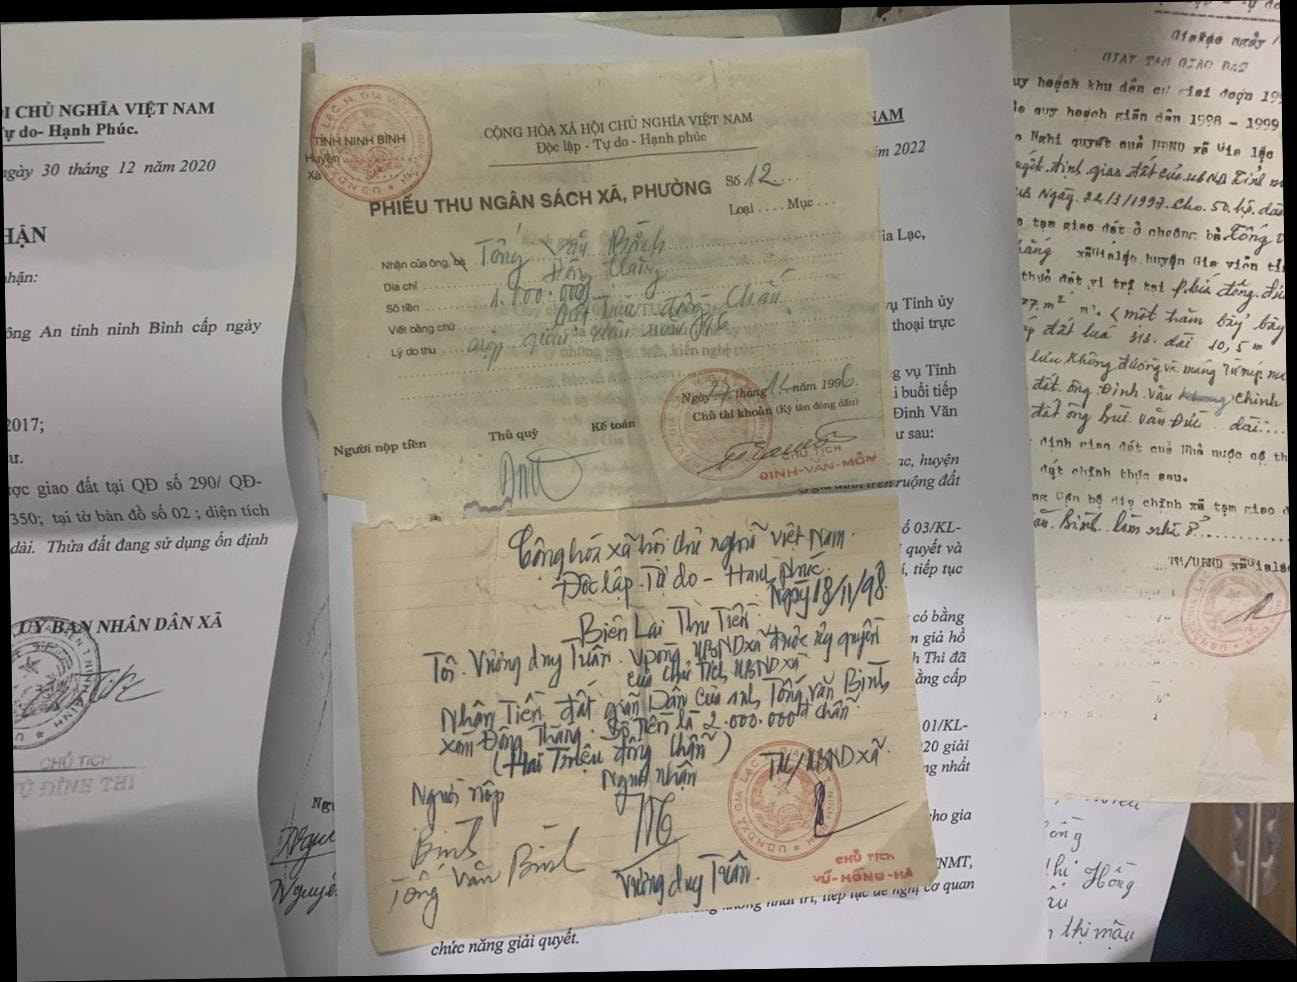 ỘI CHỦ NGHĨA VIỆT NAM
Tự do- Hạnh Phúc.
ngày 30 tháng 12 năm 2020
HẬN
nhận:
ông An tỉnh ninh Bình cấp ngày
2017;
ư.
ược giao đất tại QĐ số 290/ QĐ-
350; tại tờ bản đồ số 02 ; diện tích
dài. Thửa đất đang sử dụng ổn định
ỦY BAN NHÂN DÂN XÃ
CHỦ TỊCH
VŨ ĐÌNH THI
TỈNH NINH BÌNH
Huyện
Xã
CỘNG HÒA XÃ HỘI CHỦ NGHĨA VIỆT NAM
Độc lập - Tự do - Hạnh phúc
PHIẾU THU NGÂN SÁCH XÃ, PHƯỜNG
Số 12
Loại .... Mục ...
Nhận của ông, bà Tống Văn Bình
Địa chỉ
Số tiền 1.000.000đ
Viết bằng chữ Một triệu đồng chẵn
Lý do thu nộp giãn dân
Ngày 27 tháng 12 năm 1996
Chủ tài khoản (Ký tên đóng dấu)
Người nộp tiền
Thủ quỹ
Kế toán
CHỦ TỊCH
ĐINH-VĂN-MÔN
Cộng hóa xã hội chủ nghĩa việt Nam.
Độc lập - Tự do - Hạnh phúc.
Ngày 18/11/98
Biên Lai Thu Tiền
Tôi. Vương duy Tuân. Vphòng UBNDxã được ủy quyền
của chủ tịch UBNDxã
Nhận Tiền đất giãn Dân của anh Tống văn Bình
xóm Đồng Thắng. Số tiền là 2.000.000đ chẵn
(Hai Triệu đồng chẵn)
Người nộp
Người nhận
TM/UBNDxã
Bình
Tống Văn Bình
Vương duy Tuân.
CHỦ TỊCH
VŨ-HỒNG-HÀ
NAM
năm 2022
Gia Lạc,
vụ Tỉnh ủy
thoại trực
ng vụ Tỉnh
i buổi tiếp
Đinh Văn
ư sau:
ạc, huyện
trên ruộng đất
số 03/KL-
quyết và
í, tiếp tục
có bằng
m giả hồ
h Thi đã
ằng cấp
01/KL-
020 giải
ng nhất
cho gia
TNMT,
không nhất trí, tiếp tục đề nghị cơ quan
chức năng giải quyết.
Gialạc ngày
GIẤY TẠM GIAO ĐẤT
uy hoạch khu dân cư giai đoạn 199
quy hoạch giãn dân 1998 - 1999
Nghị quyết của HĐND xã Gia lạc
quyết định giao đất của UBND Tỉnh
Ngày 22/3/1997 cho 50 hộ dân
tạm giao đất ở cho ông bà Tống
Thắng xã Gialạc huyện Gia viễn
thửa đất vị trí tại
77 m² < một trăm bảy bảy
đất lúa 313. dài 10,5 m
đất ông Đinh văn chinh
đất ông Bùi Văn Đức dài:
định giao đất của Nhà nước có
đất chính thức sau.
cán bộ địa chính xã tạm giao
Bình
TM/UBND xã Gialạc
Hồng
thị mậu